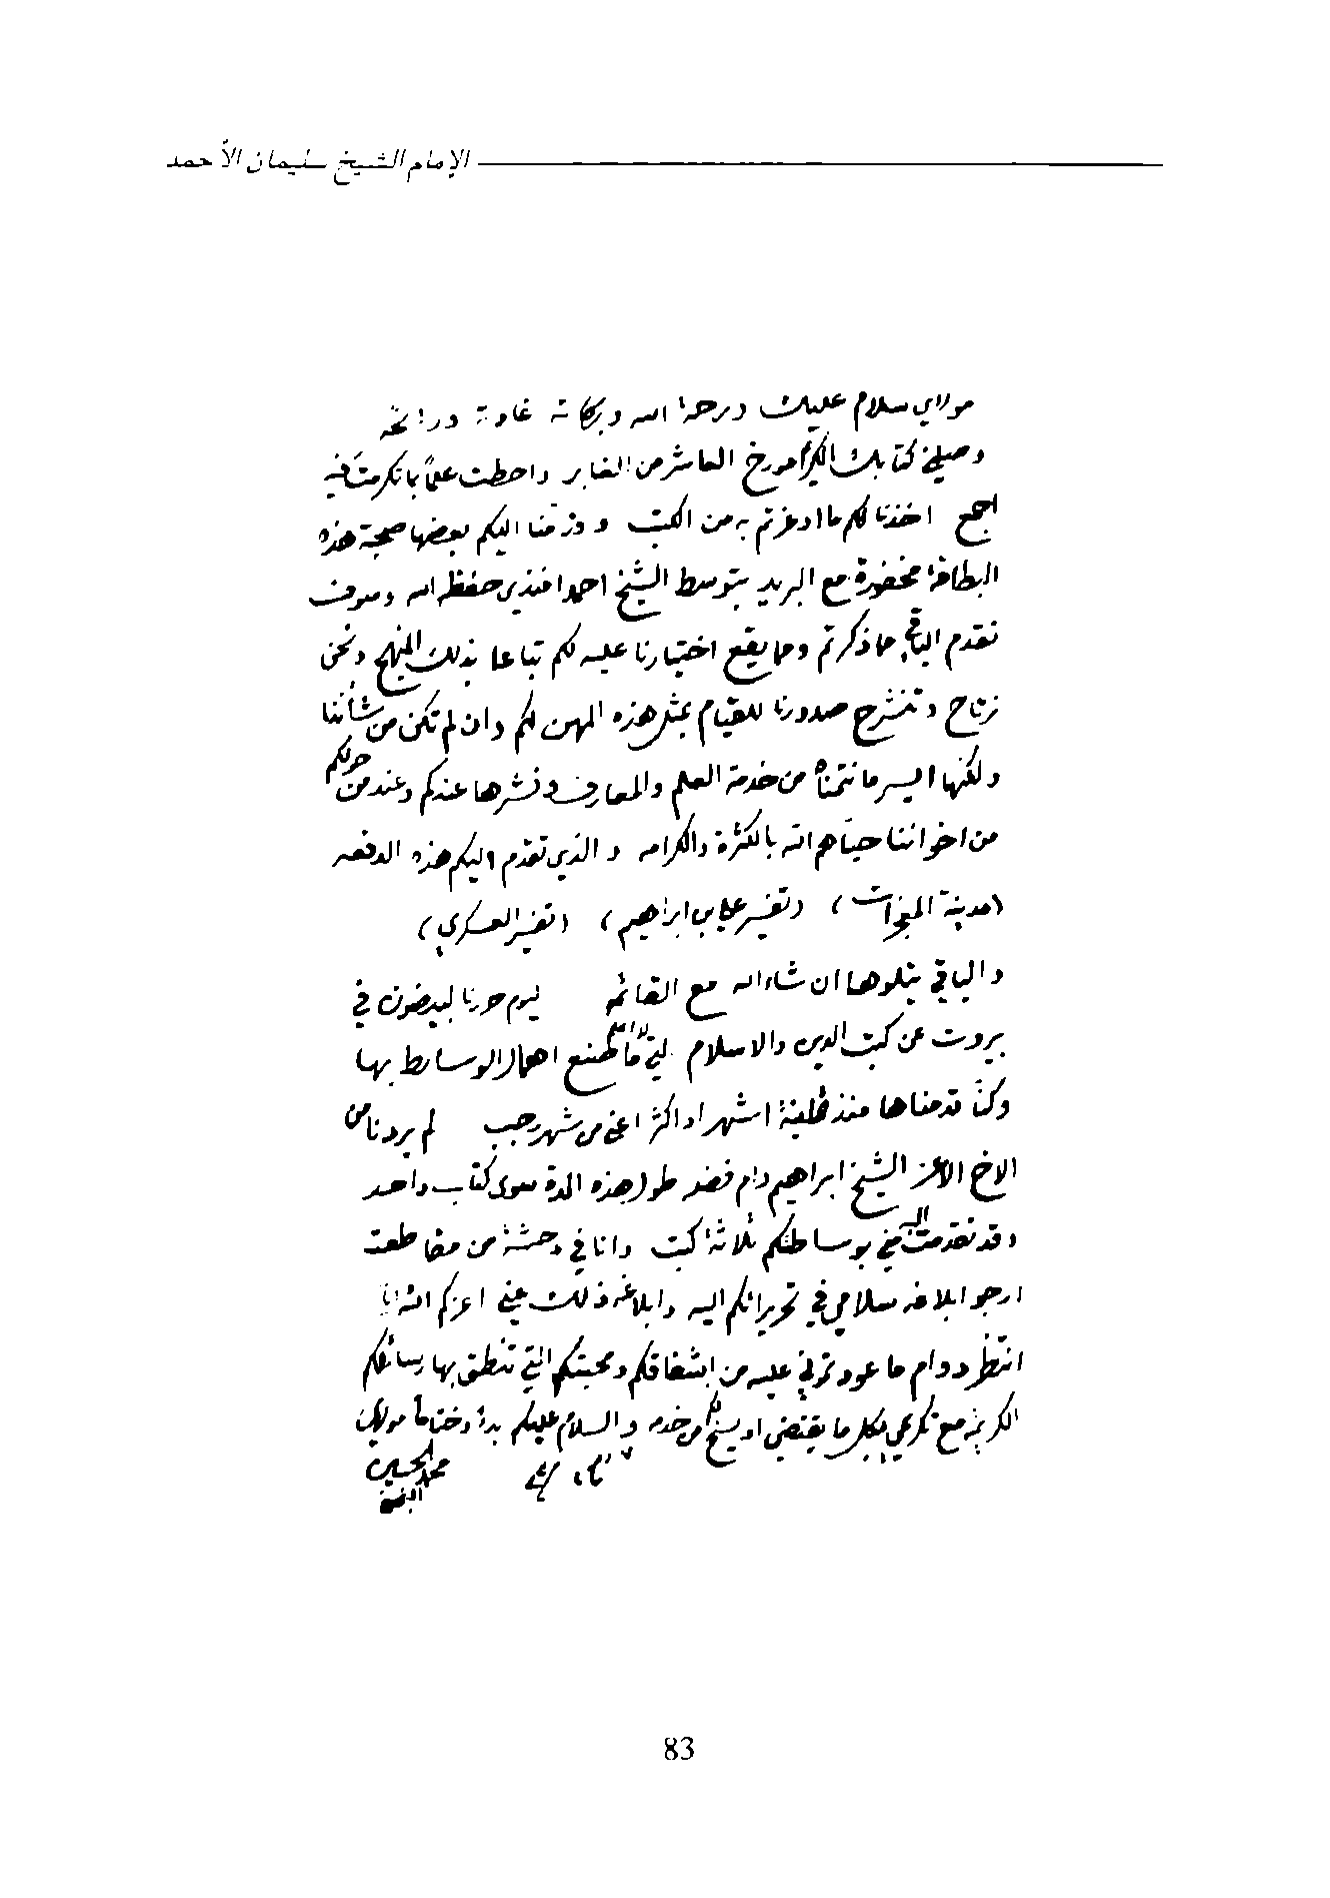 الإمام الشيخ سليمان الأحمد
مولاي سلام عليك ورحمة الله وبركاته غادية ورائحة
وصلني كتابك الكريم مورخ العاشر من الغابر واحطت علماً بما تكرمت فيه
اجمع اخذنا لكم ما اوعزتم به من الكتب وقدمنا اليكم بعضها صحبة هذه
البطاقة مع البريد بتوسط الشيخ احمد افندي حفظه الله وسوف
نقدم الباقي مما ذكرتم ومما يقع اختيارنا عليه لكم تباعا بذلك المنهج ونحن
نرتاح وتنشرح صدورنا للقيام بمثل هذه المهن لكم وان لم تكن من شأننا
ولكنها ايسر ما نتمناه من خدمة العلم والمعارف ونشرها عندكم وعند من حولكم
من اخواننا حياهم الله بالكثرة والكرامه والذي تقدم اليكم هذه الدفعه
(مدينة المعجزات) (تفسير علي بن ابراهيم) (تفسير العسكري)
والباقي يتلوها ان شاء الله مع القائمه
بيروت عن كتب الدين والاسلام اهمال الوسايط بها
وكنا قدمناها منذ ثلاثة اشهر او اكثر اعني من شهر رجب لم يردنا من
الاخ الاعز الشيخ ابراهيم دام فضله طول هذه المدة سوى كتاب واحد
وقد تقدمت اليه مني بوساطتكم ثلاثة كتب وانا في وحشة من مقاطعته
ارجو ابلاغه سلامي في تحريراتكم اليه وابلاغه ذلك عني اعزكم الله انا
انتظر دوام ما عودتموني عليه من اشفاقكم ومحبتكم التي تنطق بها رسائلكم
الكريمة مع تكرمي بكل ما يقتضي او يسنح لكم من خدمه والسلام عليكم بدءً وختاماً مولاي
محمد الحسين
83